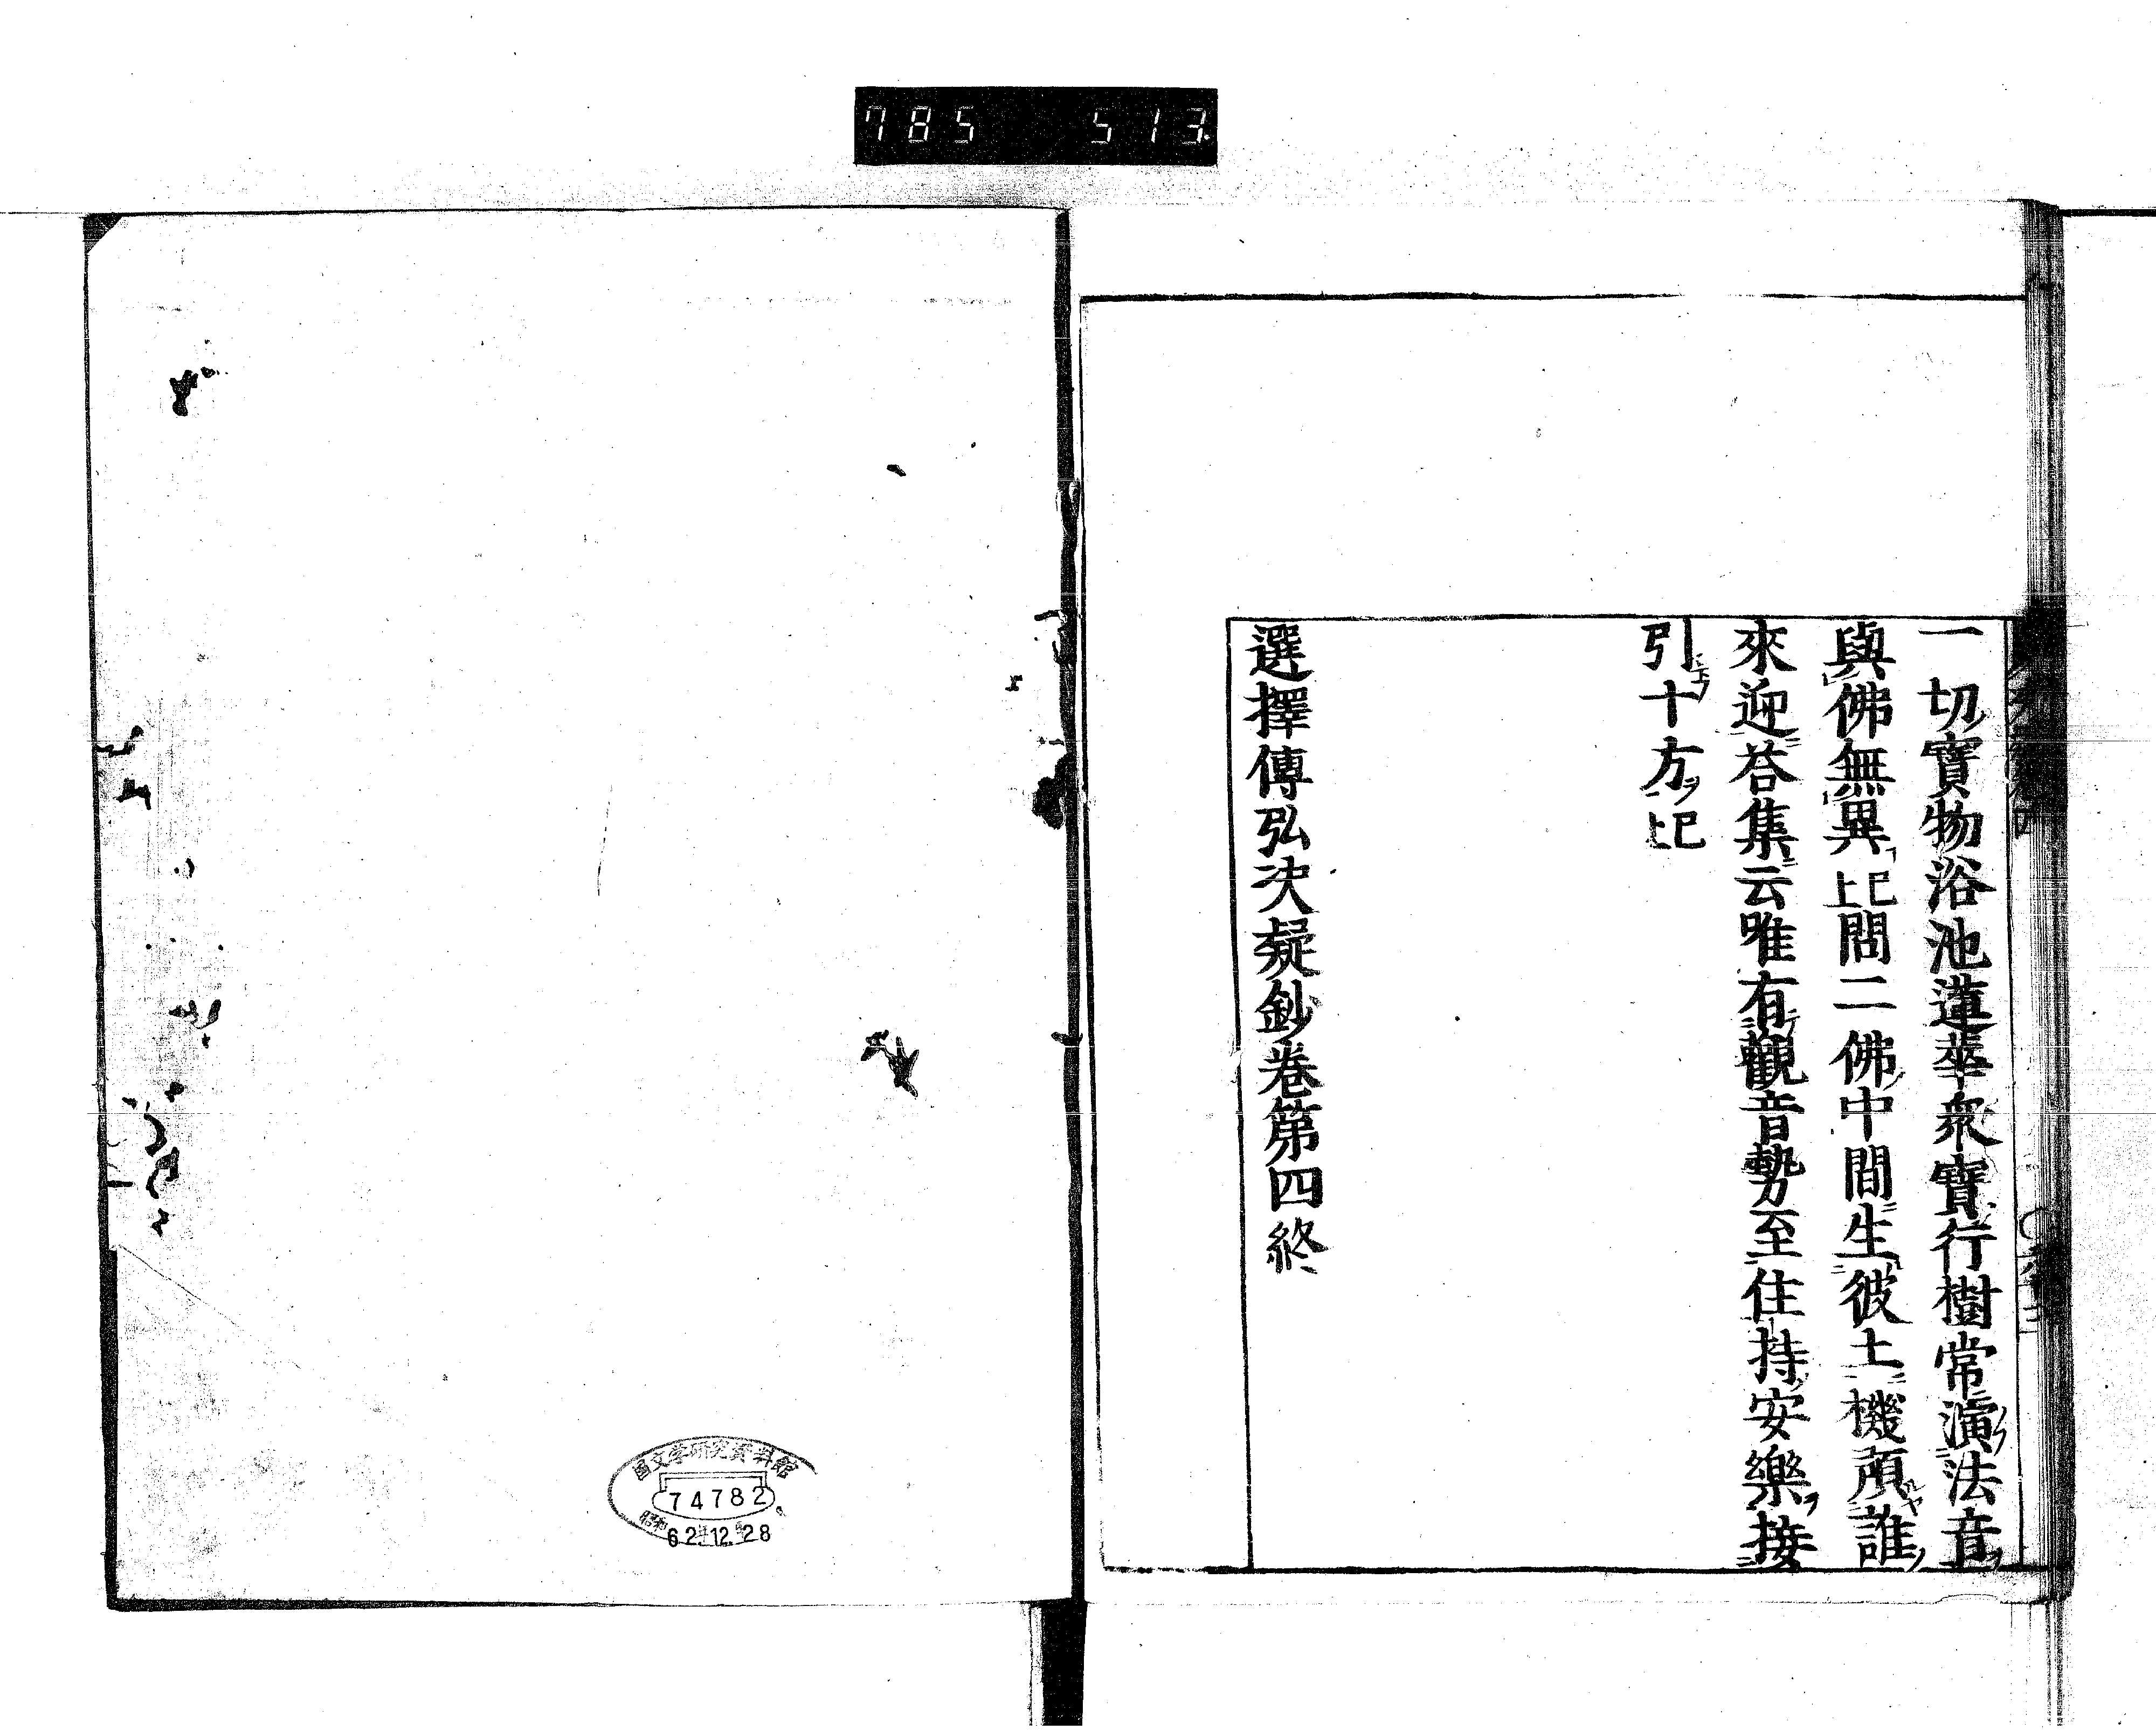 785 513
一切寶物浴池蓮華衆寶行樹常演法音
與佛無異已上問二佛中間生彼土機預誰
來迎荅集云唯有觀音勢至住持安樂接
引十方已上
選擇傳弘决疑鈔卷第四終
國文学研究資料館
74782
昭和
62.12.28